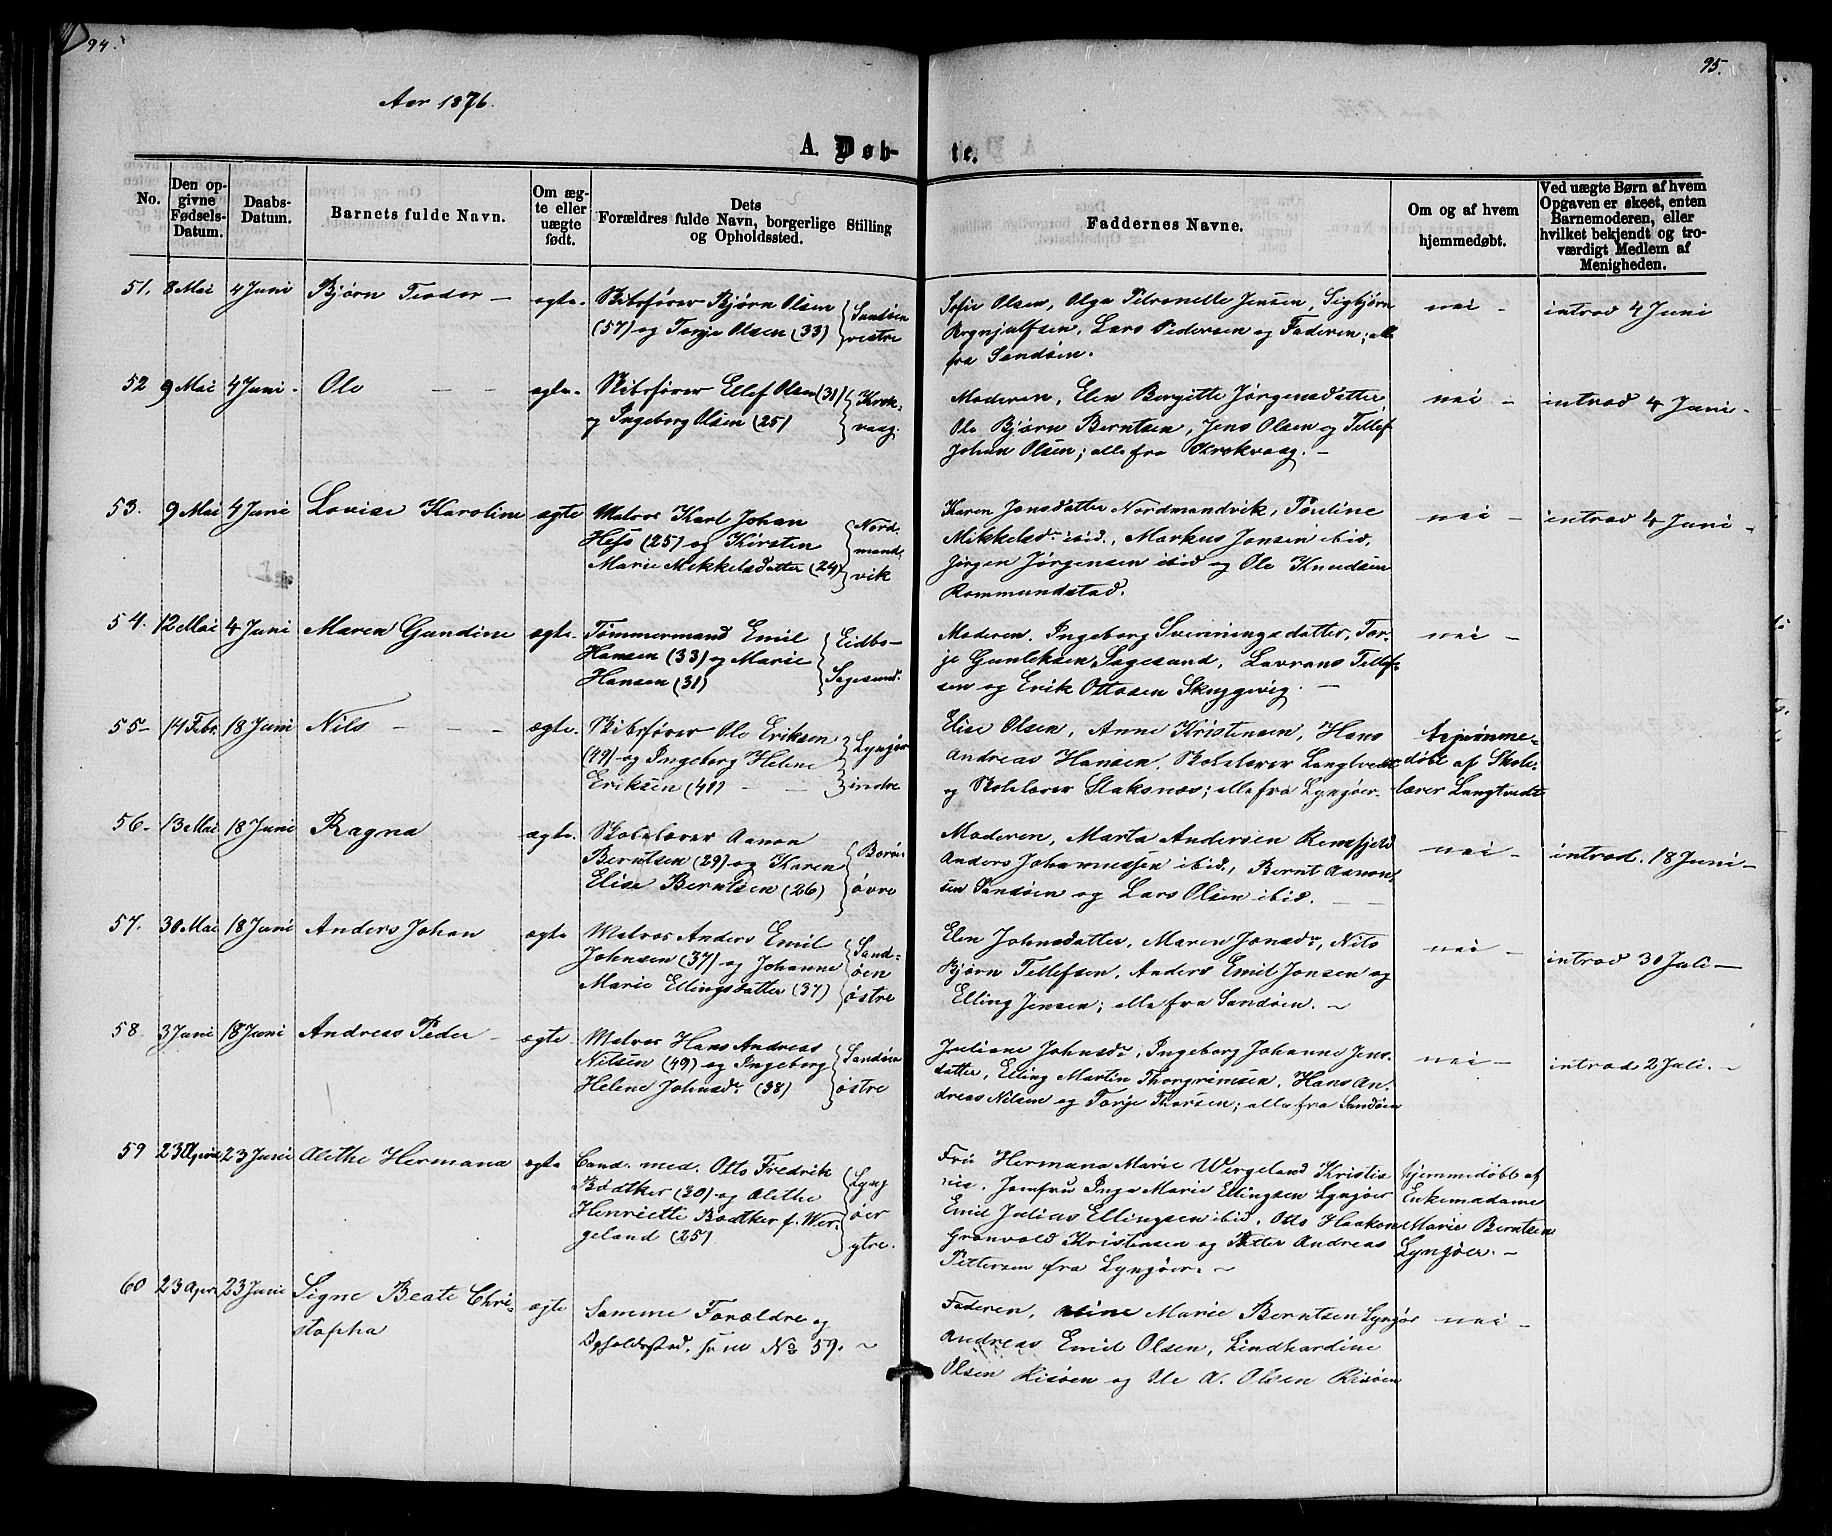 94.
95.
Aar 1876.
A. Døb-
te.
No.
Den op-
givne
Fødsels-
Datum.
Daabs-
Datum.
Barnets fulde Navn.
Om æg-
te eller
uægte
født.
Dets
Forældres fulde Navn, borgerlige Stilling
og Opholdssted.
Faddernes Navne.
Om og af hvem
hjemmedøbt.
Ved uægte Børn af hvem
Opgaven er skeet, enten
Barnemoderen, eller
hvilket bekjendt og tro-
værdigt Medlem af
Menigheden.
51. 8 Mai 4 Juni Bjørn Teodor — ægte. Skibsfører Bjørn Olsen
(57) og Torje Olsen (33)
Sandøen
vestre
Sofie Olsen, Olga Petronelle Jensen, Sigbjørn
Brynjulfsen, Lars Pedersen og Faderen; alle
fra Sandøen.
nei - introd 4 Juni
52 9 Mai 4 Juni. Ole — — ægte. Skibsfører Ellef Olsen (31)
og Ingeborg Olsen (25)
Krok-
vaag.
Moderen, Elen Bergitte Jørgensdatter
Ole Bjørn Berntsen, Jens Olsen og Tellef
Johan Olsen; alle fra Krokvaag. —
nei - introd 4 Juni -
53. 9 Mai 4 Juni Lovise Karoline ægte Matros Karl Johan
Hess (25) og Kirsten
Marie Mikkelsdatter (24)
Nord-
mand-
vik
Karen Jonsdatter Nordmandvik, Pauline
Mikkelsdr ibid., Markus Jonsen ibid,
Jørgen Jørgensen ibid og Ole Knudsen
Rommundstad.
nei - introd 4 Juni -
54. 12 Mai 4 Juni Maren Gundine ægte. Tømmermand Emil
Hansen (33) og Marie
Hansen (31)
Eidbo—
Sagesund.
Moderen. Ingeborg Svenningsdatter, Tor-
je Gunleksen Sagesund, Lavrans Tellef-
sen og Erik Ottosen Skuggevig. —
nei -
55- 14 Febr. 18 Juni Nils — — — ægte. Skibsfører Ole Eriksen
(49) og Ingeborg Helene
Eriksen (41) — —
Lyngør
indre
Elise Olsen, Anne Kristensen, Hans
Andreas Hansen, Skolelærer Langtvedt
og Skolelærer Slaksnæs; alle fra Lyngøer.
hjemme-
døbt af Skole-
lærer Langtvedt
56. 13 Mai 18 Juni Ragna ægte. Skolelærer Aanon
Berntsen (29) og Karen
Elise Berntsen (26)
Borøe
øvre
Moderen, Marta Andersen Remsfjeld
Anders Johannessen ibid., Bernt Aanon-
sen Sandøen og Lars Olsen ibid.
nei - introd. 18 Juni -
57. 30 Mai 18 Juni Anders Johan ægte Matros Anders Emil
Johnsen (37) og Johanne
Marie Ellingsdatter (37)
Sand-
øen
østre
Elen Johnsdatter, Maren Jonsdr, Nils
Bjørn Tellefsen, Anders Emil Jonsen og
Elling Jensen; alle fra Sandøen. ~
nei - introd 30 Juli —
58. 3 Juni 18 Juni Andreas Peder - ægte. Matros Hans Andreas
Nilsen (49) og Ingeborg
Helene Johnsdr. (38)
Sandøen
østre
Juliane Johnsdr, Ingeborg Johanne Jens-
datter, Elling Martin Thorgrimsen, Hans An-
dreas Nilsen og Torje Thorsen; alle fra Sandøen
nei - introd 2 Juli. ~
59 23 April 23 Juni Alethe Hermana ægte Cand. med. Otto Fredrik
Bødtker (30) og Alethe
Henriette Bødtker f. Wer-
geland (25)
Lyng
øer
ytre.
Frue Hermana Marie Wergeland Kristia
nia. Jomfru Inga Marie Ellingsen Lyngøer
Emil Julius Ellingsen ibid, Otto Haakon
Grønvold Kristensen og Petter Andreas
Pettersen fra Lyngøer. ~
hjemmedøbt af
Enkemadame
Marie Berntsen
Lyngøer. ~
60 23 Apri 23 Juni Signe Beate Chri-
stopha
ægte Samme Forældre og
Opholdssted, som No 59. ~
Faderen, Marie Berntsen Lyngør
Andreas Emil Olsen, Lindhardine
Olsen Risøen og Ole A. Olsen Risøen
nei -